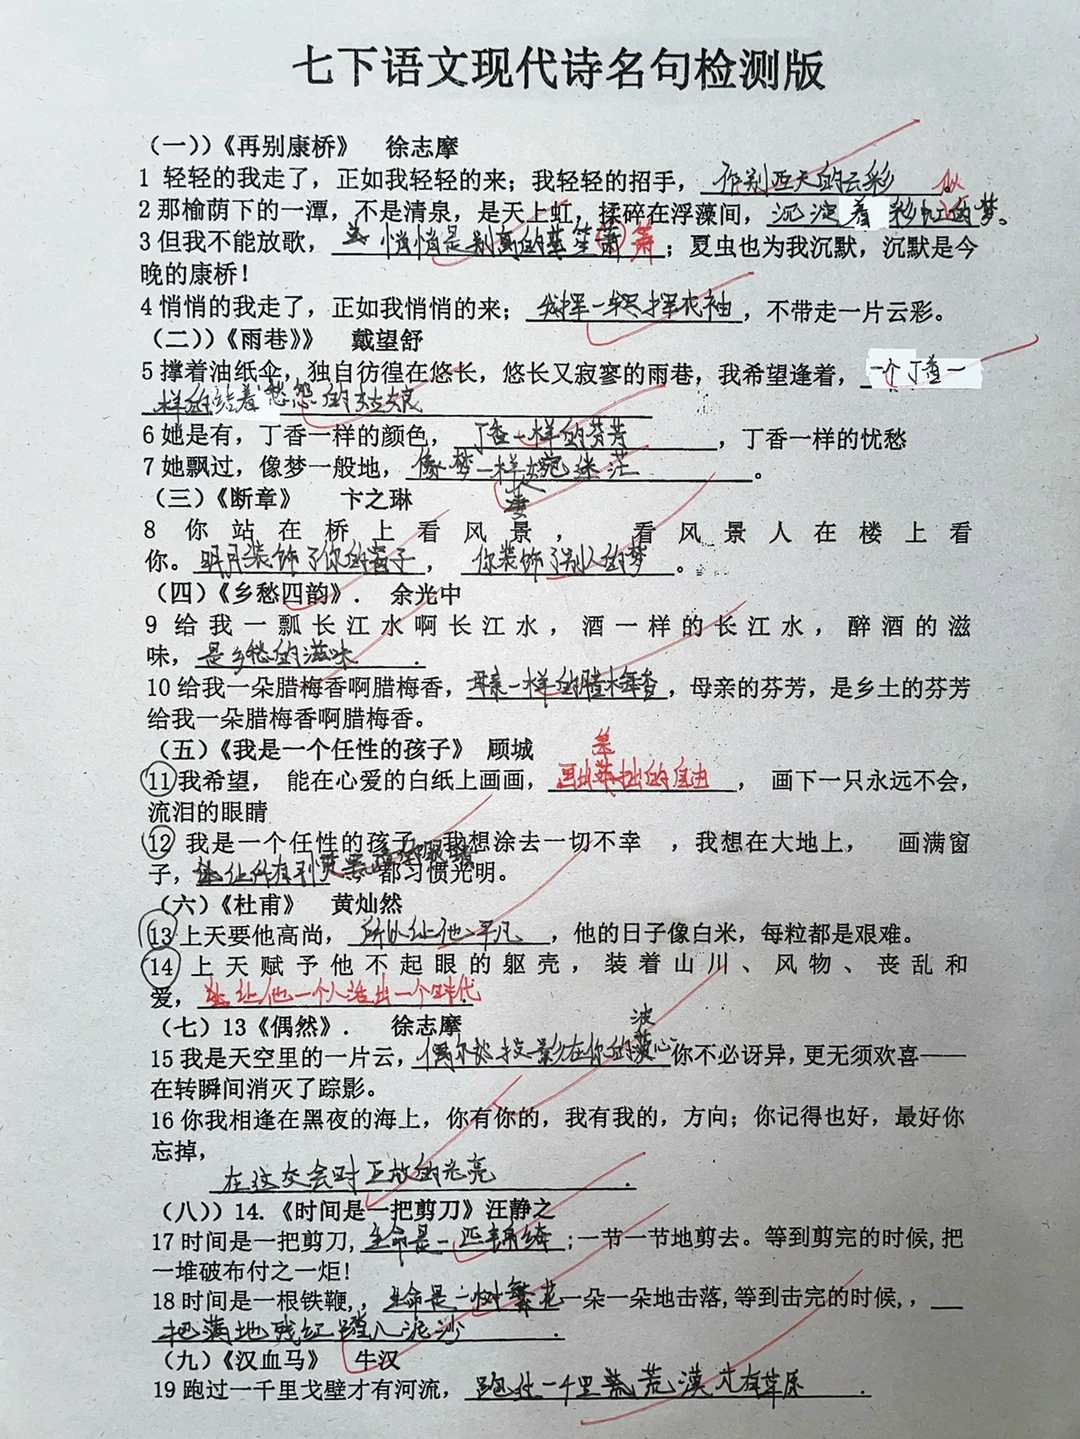 七下语文现代诗名句检测版
（一））《再别康桥》 徐志摩
1 轻轻的我走了，正如我轻轻的来；我轻轻的招手，作别西天的云彩。
似
2 那榆荫下的一潭，不是清泉，是天上虹，揉碎在浮藻间，沉淀着彩虹的梦。
3 但我不能放歌，悄悄是别离的笙箫 箫；夏虫也为我沉默，沉默是今
晚的康桥！
4 悄悄的我走了，正如我悄悄的来；我挥一挥衣袖，不带走一片云彩。
（二））《雨巷》》 戴望舒
5 撑着油纸伞，独自彷徨在悠长，悠长又寂寥的雨巷，我希望逢着，一个丁香一
样的结着愁怨的姑娘
6 她是有，丁香一样的颜色，丁香一样的芬芳，丁香一样的忧愁
7 她飘过，像梦一般地，像梦一样凄婉迷茫。
（三）《断章》 卞之琳
8 你站在桥上看风景，看风景人在楼上看
你。明月装饰了你的窗子，你装饰了别人的梦。
（四）《乡愁四韵》． 余光中
9 给我一瓢长江水啊长江水，酒一样的长江水，醉酒的滋
味，是乡愁的滋味．
10 给我一朵腊梅香啊腊梅香，母亲一样的腊梅香，母亲的芬芳，是乡土的芬芳
给我一朵腊梅香啊腊梅香。
（五）《我是一个任性的孩子》 顾城
笨
11 我希望， 能在心爱的白纸上画画，画出笨拙的自由， 画下一只永远不会，
流泪的眼睛
12 我是一个任性的孩子，我想涂去一切不幸 ，我想在大地上， 画满窗
子，让所有习惯黑暗的眼睛 都习惯光明。
（六）《杜甫》 黄灿然
13 上天要他高尚，所以让他平凡，他的日子像白米，每粒都是艰难。
14 上天赋予他不起眼的躯壳，装着山川、风物、丧乱和
爱，让他一个人活出一个时代．
（七）13《偶然》． 徐志摩
波
15 我是天空里的一片云，偶尔投影在你的心你不必讶异，更无须欢喜——
在转瞬间消灭了踪影。
16 你我相逢在黑夜的海上，你有你的，我有我的，方向；你记得也好，最好你
忘掉，
在这交会时互放的光亮．
（八））14.《时间是一把剪刀》汪静之
17 时间是一把剪刀，生命是一匹锦绮；一节一节地剪去。等到剪完的时候，把
一堆破布付之一炬！
18 时间是一根铁鞭，，生命是一树繁花一朵一朵地击落，等到击完的时候，，
把满地残红踏入泥沙．
（九）《汉血马》 牛汉
19 跑过一千里戈壁才有河流，跑过一千里荒漠才有草原．